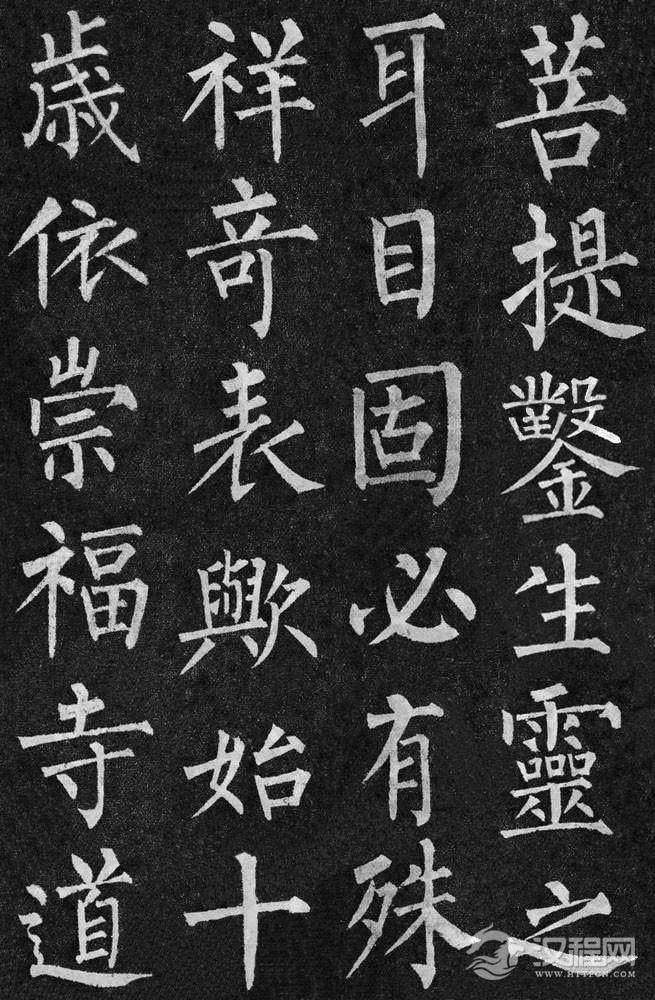 菩提鑿生靈之
耳目固必有殊
祥奇表歟始十
歲依崇福寺道
汉程网
WWW.HTTPCN.COM